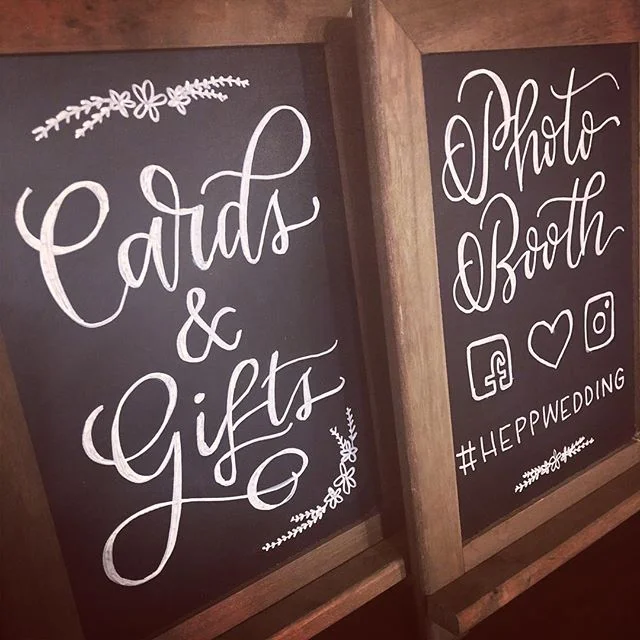 Cards
&
Gifts
Photo
Booth
#HEPPWEDDING